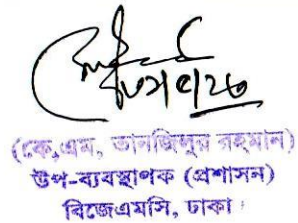 (কে,এম, তানজিলুর রহমান)
উপ-ব্যবস্থাপক (প্রশাসন)
বিজেএমসি, ঢাকা।